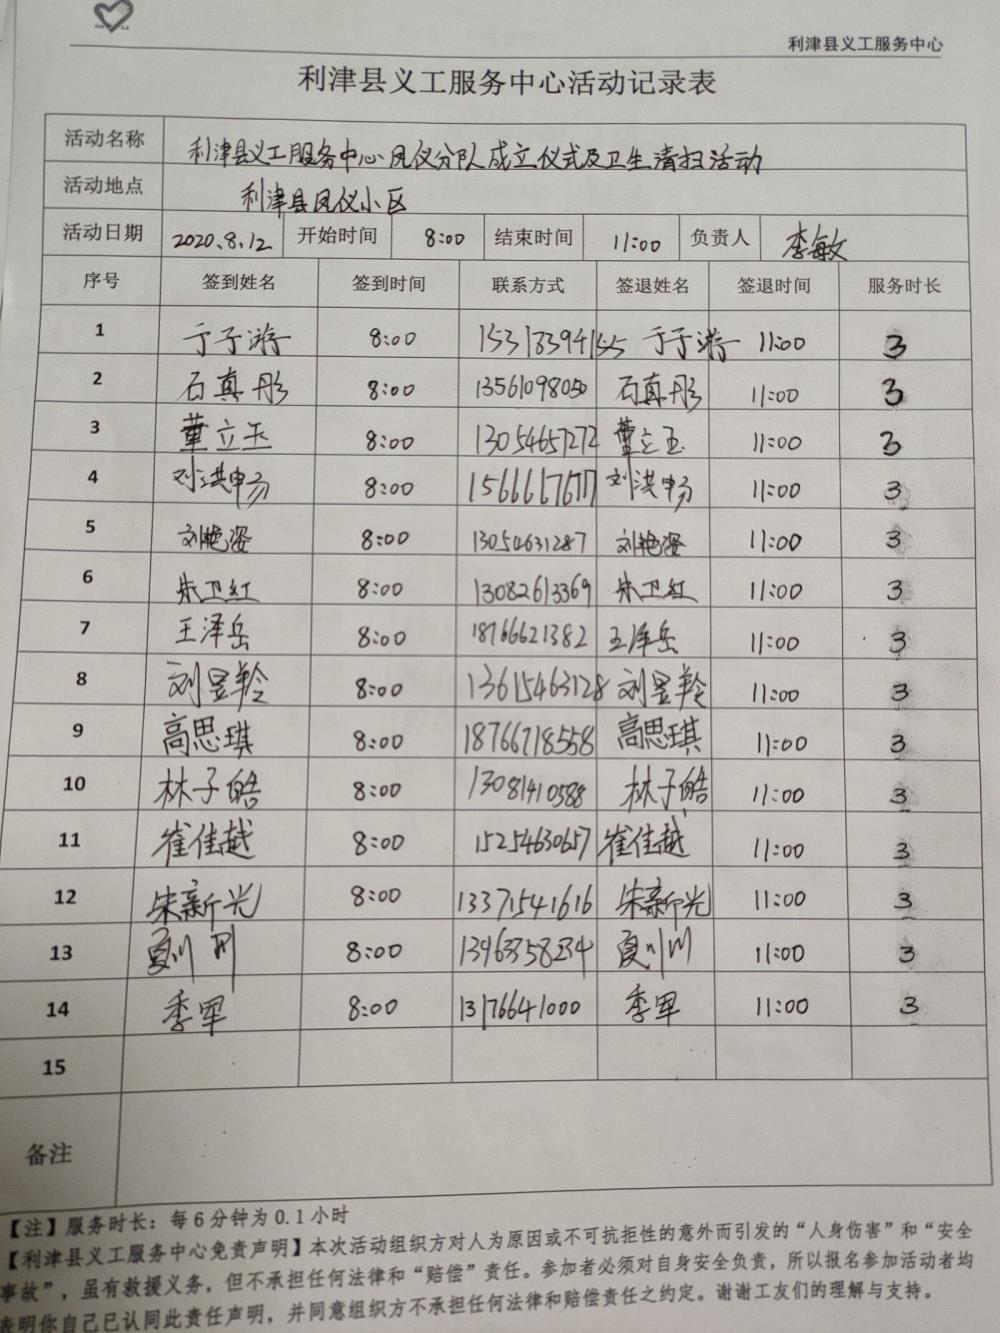 利津县义工服务中心
利津县义工服务中心活动记录表
活动名称 利津县义工服务中心凤仪分队成立仪式及卫生清扫活动
活动地点 利津县凤仪小区
活动日期 2020.8.12 开始时间 8:00 结束时间 11:00 负责人 李敏
序号 签到姓名 签到时间 联系方式 签退姓名 签退时间 服务时长
1 于子游 8:00 于子游 11:00 3
2 石真彤 8:00 13561098050 石真彤 11:00 3
3 董立玉 8:00 13054657272 董立玉 11:00 3
4 刘洪畅 8:00 刘洪畅 11:00 3
5 刘艳姿 8:00 13054631287 刘艳姿 11:00 3
6 朱卫红 8:00 13082613369 朱卫红 11:00 3
7 王泽岳 8:00 18766621382 王泽岳 11:00 3
8 刘昱羚 8:00 13615463128 刘昱羚 11:00 3
9 高思琪 8:00 18766718558 高思琪 11:00 3
10 林子皓 8:00 13081410588 林子皓 11:00 3
11 崔佳越 8:00 15254630657 崔佳越 11:00 3
12 朱新光 8:00 13371541616 朱新光 11:00 3
13 8:00 13963758234 11:00 3
14 季军 8:00 13176641000 季军 11:00 3
15
备注
【注】服务时长：每6分钟为0.1小时
【利津县义工服务中心免责声明】本次活动组织方对人为原因或不可抗拒性的意外而引发的“人身伤害”和“安全
事故”，虽有救援义务，但不承担任何法律和“赔偿”责任。参加者必须对自身安全负责，所以报名参加活动者均
表明你自己已认同此责任声明，并同意组织方不承担任何法律和赔偿责任之约定。谢谢工友们的理解与支持。